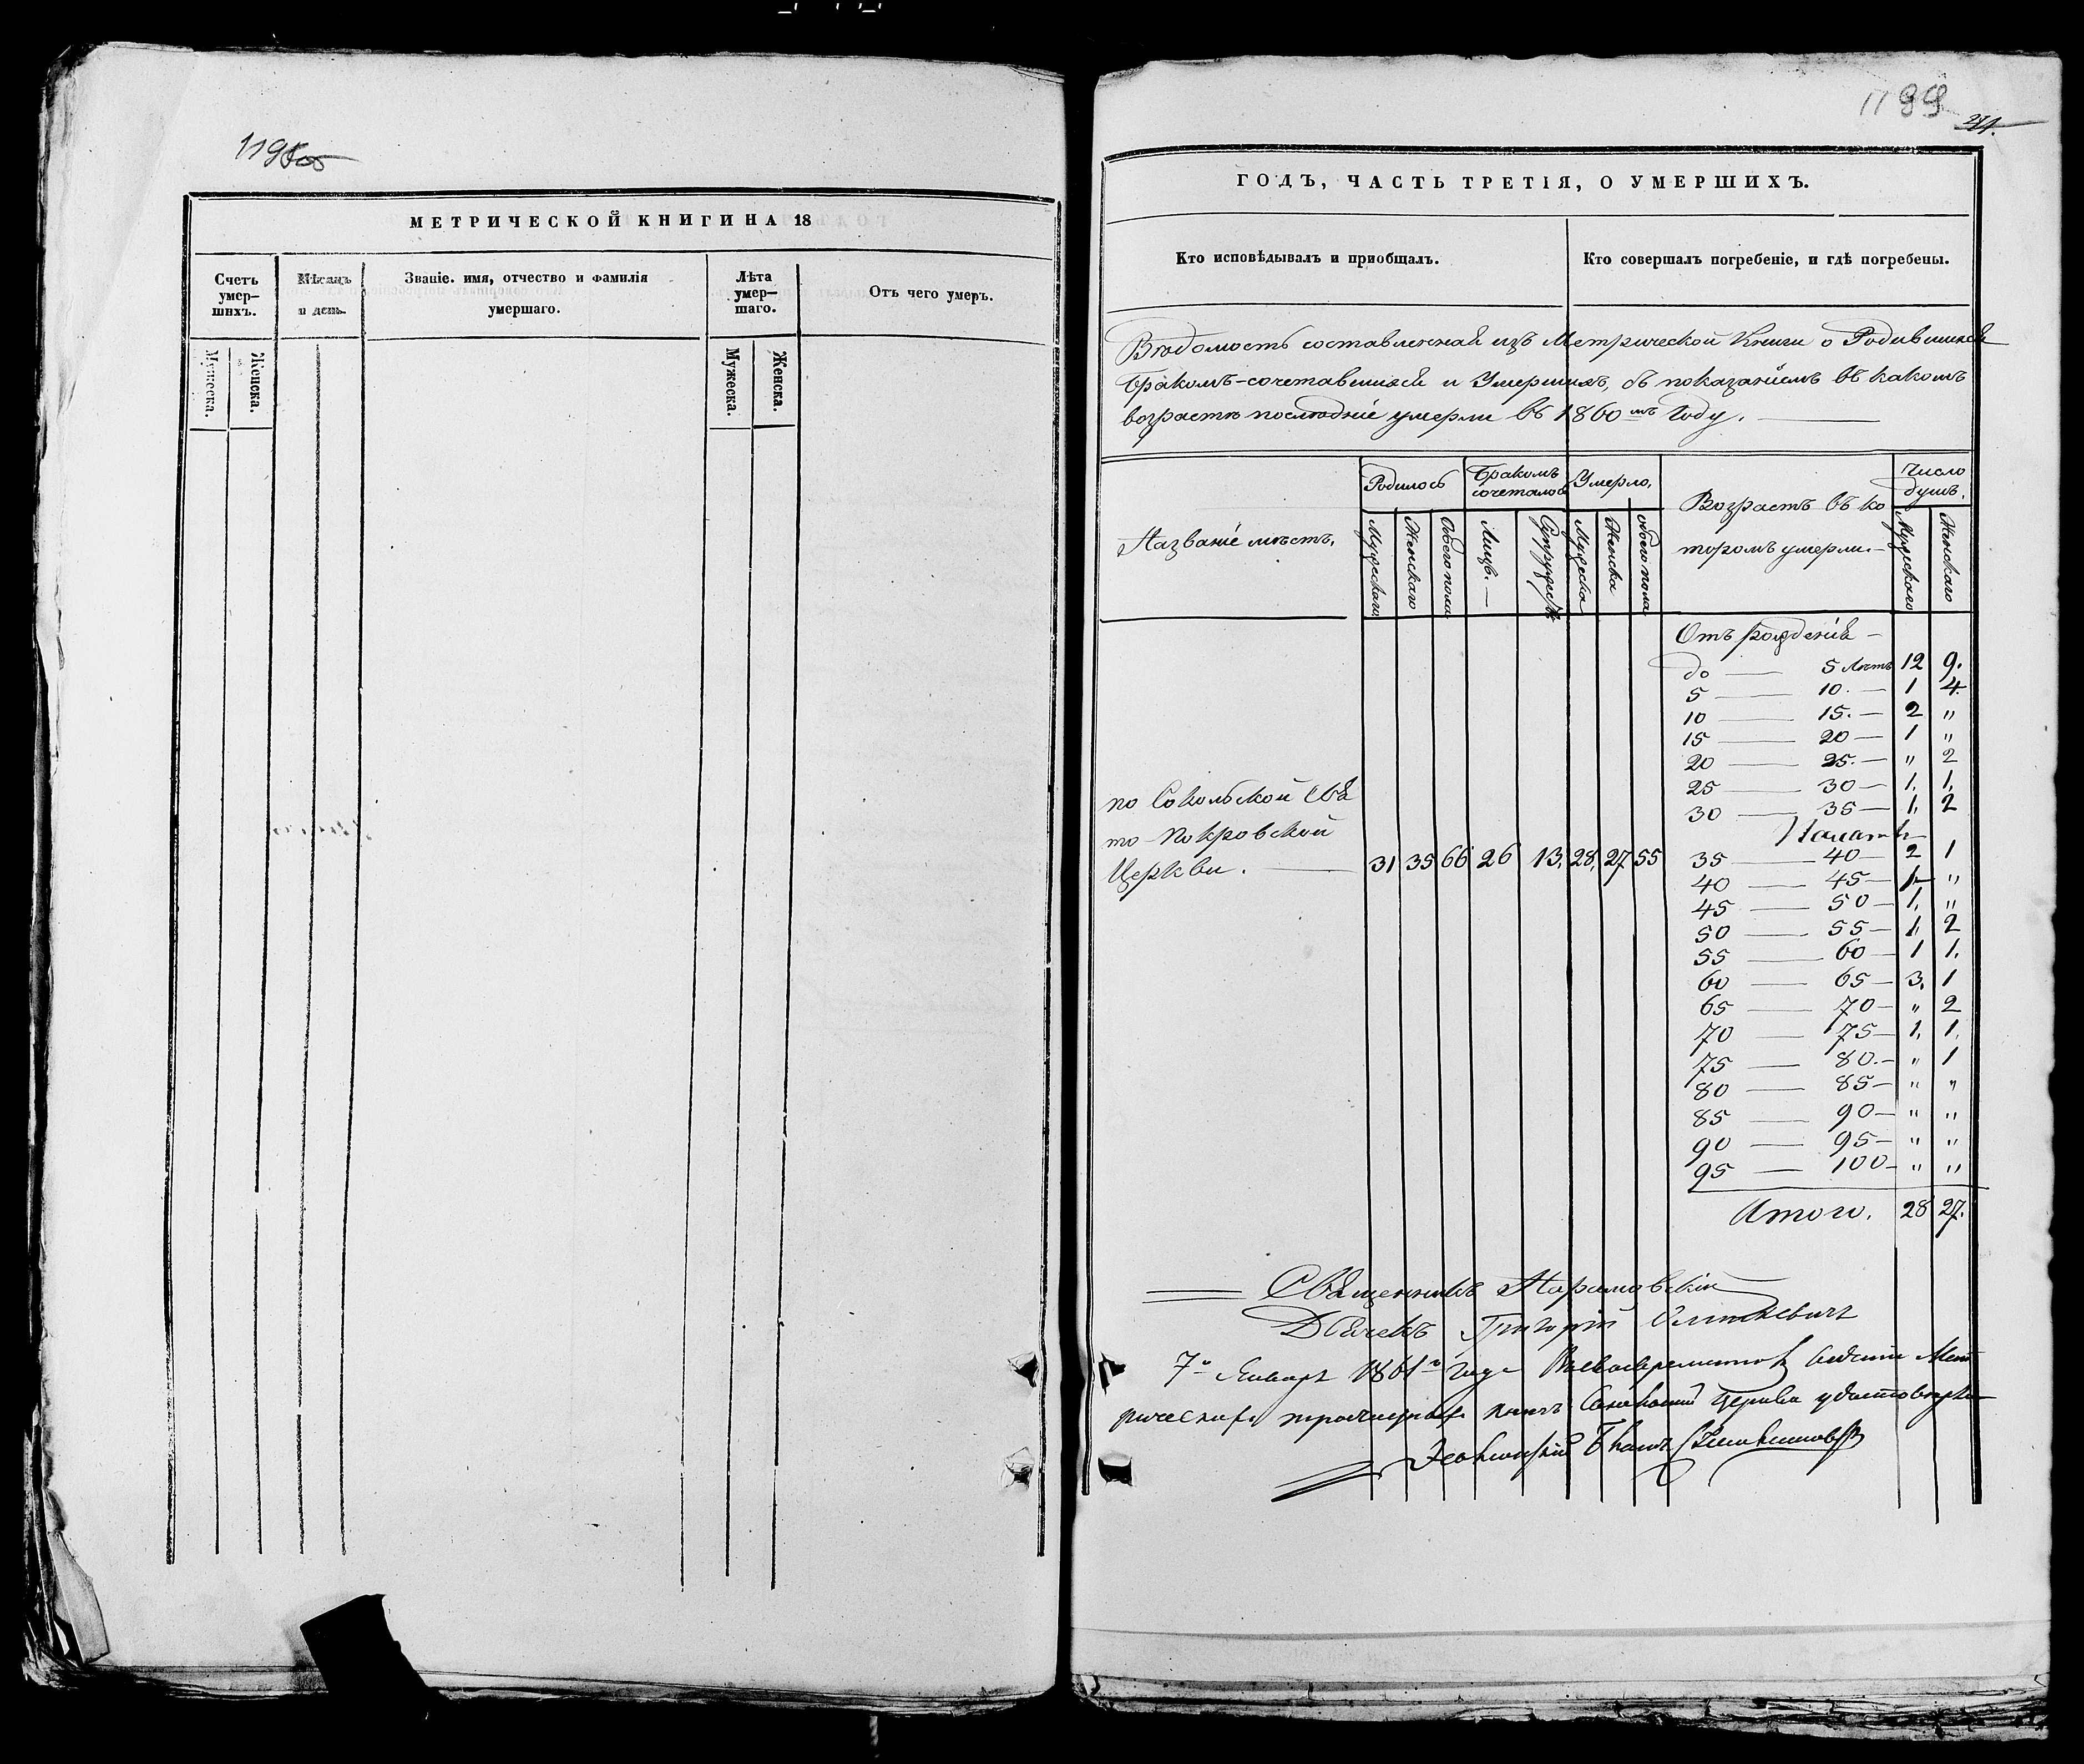 1198
МЕТРИЧЕСКОЙ КНИГИ НА 18
Счетъ умер–шихъ.
Мѣсяцъ и день.
Званіе. имя, отчество и фамилія умершаго.
Лѣта умер–шаго.
Отъ чего умеръ.
Мужеска.
Женска.
Мужеска.
Женска.
1199
ГОДЪ, ЧАСТЬ ТРЕТІЯ, О УМЕРШИХЪ.
Кто исповѣдывалъ и приобщалъ.
Кто совершалъ погребеніе, и гдѣ погребены.
Вѣдомость составленная изъ Метрической Книги о Родившихся
Бракомъ-сочетавшихся и Умершихъ, съ показаніемъ въ какомъ
возрастѣ послѣдніе умерли въ 1860мъ Году. —
Названіе мѣстъ.
Родилось
Бракомъ сочеталось
Умерло,
Возрастъ въ ко
торомъ умерли.—
Число душъ.
Мужескаго
Женскаго
Обоего пола
Лицъ. —
Супружествъ
Мужеска
Женска
обоего пола
Мужескаго
Женскаго
Отъ рожденія —
до — 5 Лѣтъ 12 9.
5 — 10. — 1 4.
10 — 15. — 2 "
15 — 20 — 1 "
20 — 25. — " 2
25 — 30 — 1. 1.
30 — 35 — 1. 2
по Сокольской Свя
то-Покровской
Церкви. — 31 35 66 26 13. 28. 27 55
35 — 40 — 2 1
40 — 45 — 1 "
45 — 50 — 1. "
50 — 55 — 1. 2
55 — 60 — 1 1.
60 — 65 — 3. 1
65 — 70 — " 2
70 — 75 — 1. 1.
75 — 80. — " 1
80 — 85 — " "
85 — 90 — " "
90 — 95 — " "
95 — 100 — " "
Итого. 28 27.
Священникъ
Дьячекъ Григорій
7го Января 1861го года
церкви